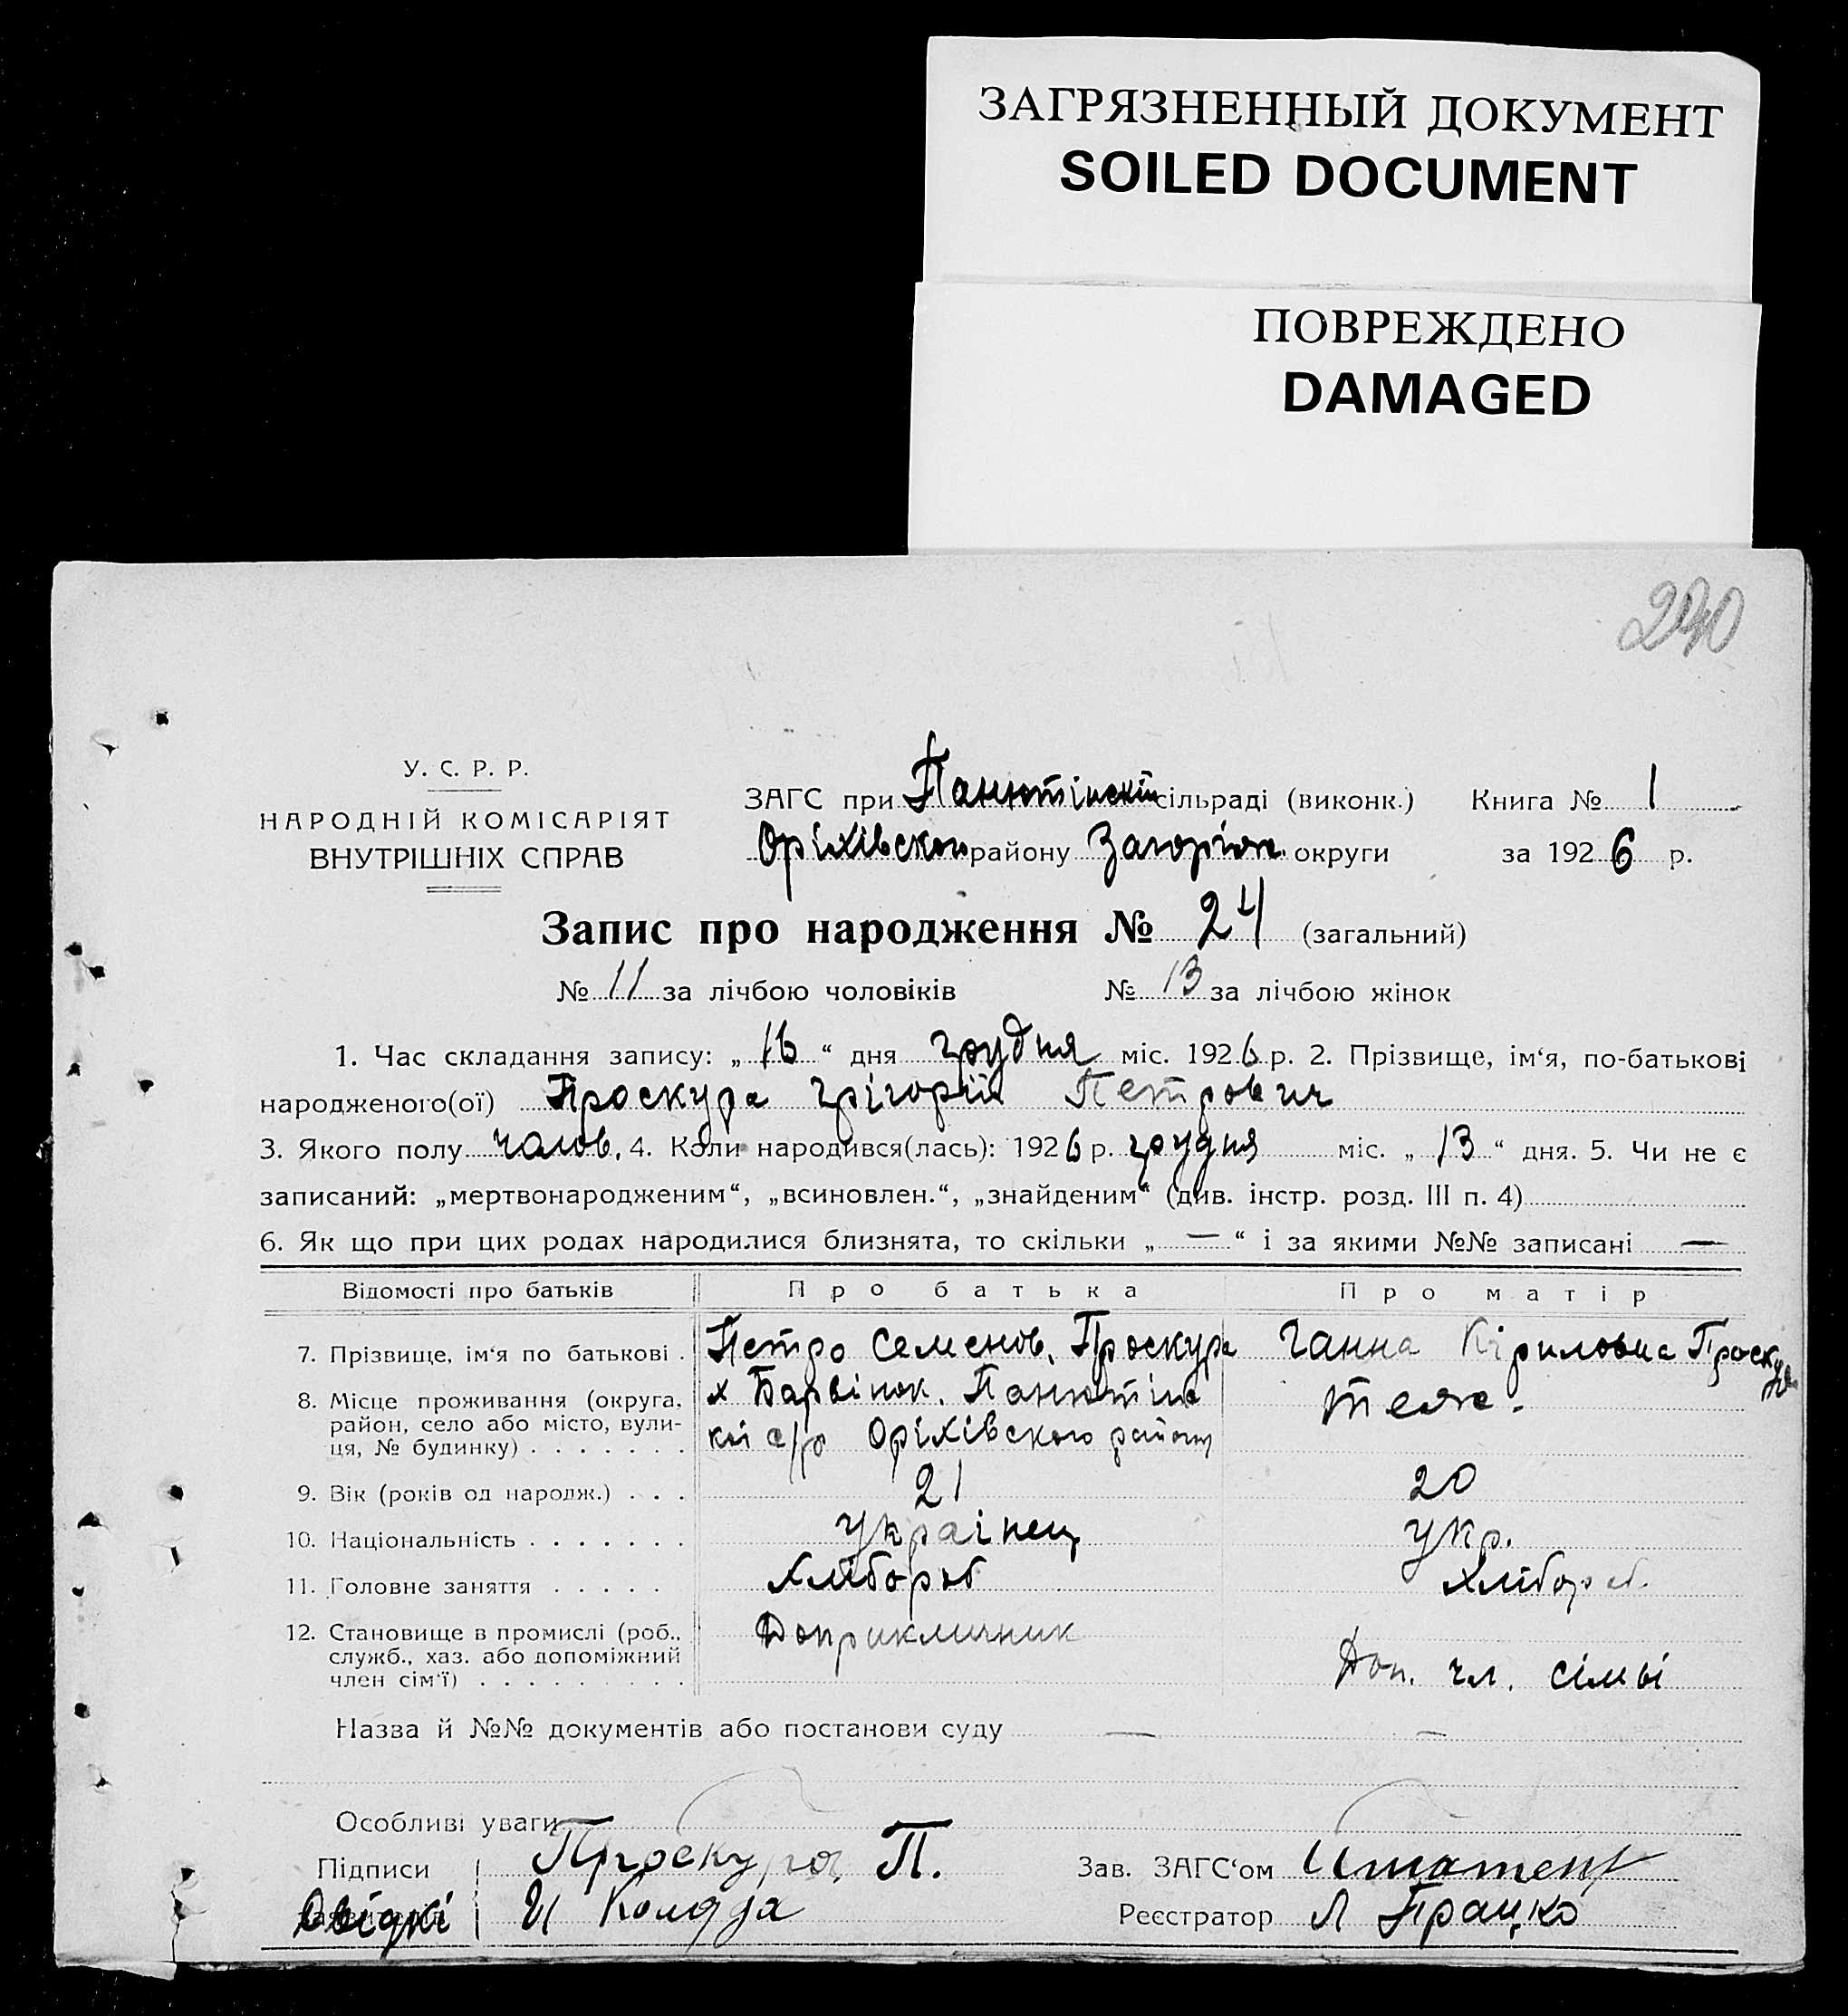 ЗАГРЯЗНЕННЫЙ ДОКУМЕНТ
SOILED DOCUMENT
ПОВРЕЖДЕНО
DAMAGED
240
У. С. Р. Р.
НАРОДНІЙ КОМІСАРІЯТ
ВНУТРІШНІХ СПРАВ
ЗАГС при Панютінскій сільраді (виконк.) Книга № 1
Оріхівского району округи за 1926 р.
Запис про народження № 24 (загальний)
№ 11 за лічбою чоловіків № 13 за лічбою жінок
1. Час складання запису: „16“ дня грудня міс. 1926 р. 2. Прізвище, ім‘я, по-батькові
народженого(ої) Проскура Грігорій Петрович
3. Якого полу чолов. 4. Коли народився(лась): 1926 р. грудня міс. „13“ дня. 5. Чи не є
записаний: „мертвонародженим“, „всиновлен.“, „знайденим“ (див. інстр. розд. III п. 4)
6. Як що при цих родах народилися близнята, то скільки „—“ і за якими №№ записані —
Відомості про батьків Про батька Про матір
7. Прізвище, ім‘я по батькові . Петро Семенов. Проскура Ганна Кіриловна Проскура
8. Місце проживання (округа, район, село або місто, вулиця, № будинку) . . . . . . .
х Барвінок. Панютінс теж.
кої с/р Оріхівского району
9. Вік (років од народж.) . . . 21 20
10. Національність . . . . . . . Украінец Укр.
11. Головне заняття . . . . . Хлібороб Хлібороб.
12. Становище в промислі (роб., служб., хаз. або допоміжний член сім‘ї) . . . . . . . . .
Доп. чл. сімьі
Назва й №№ документів або постанови суду — —
Особливі уваги
Підписи Проскура П. Зав. ЗАГС‘ом
Свідкі Реєстратор Л Працко